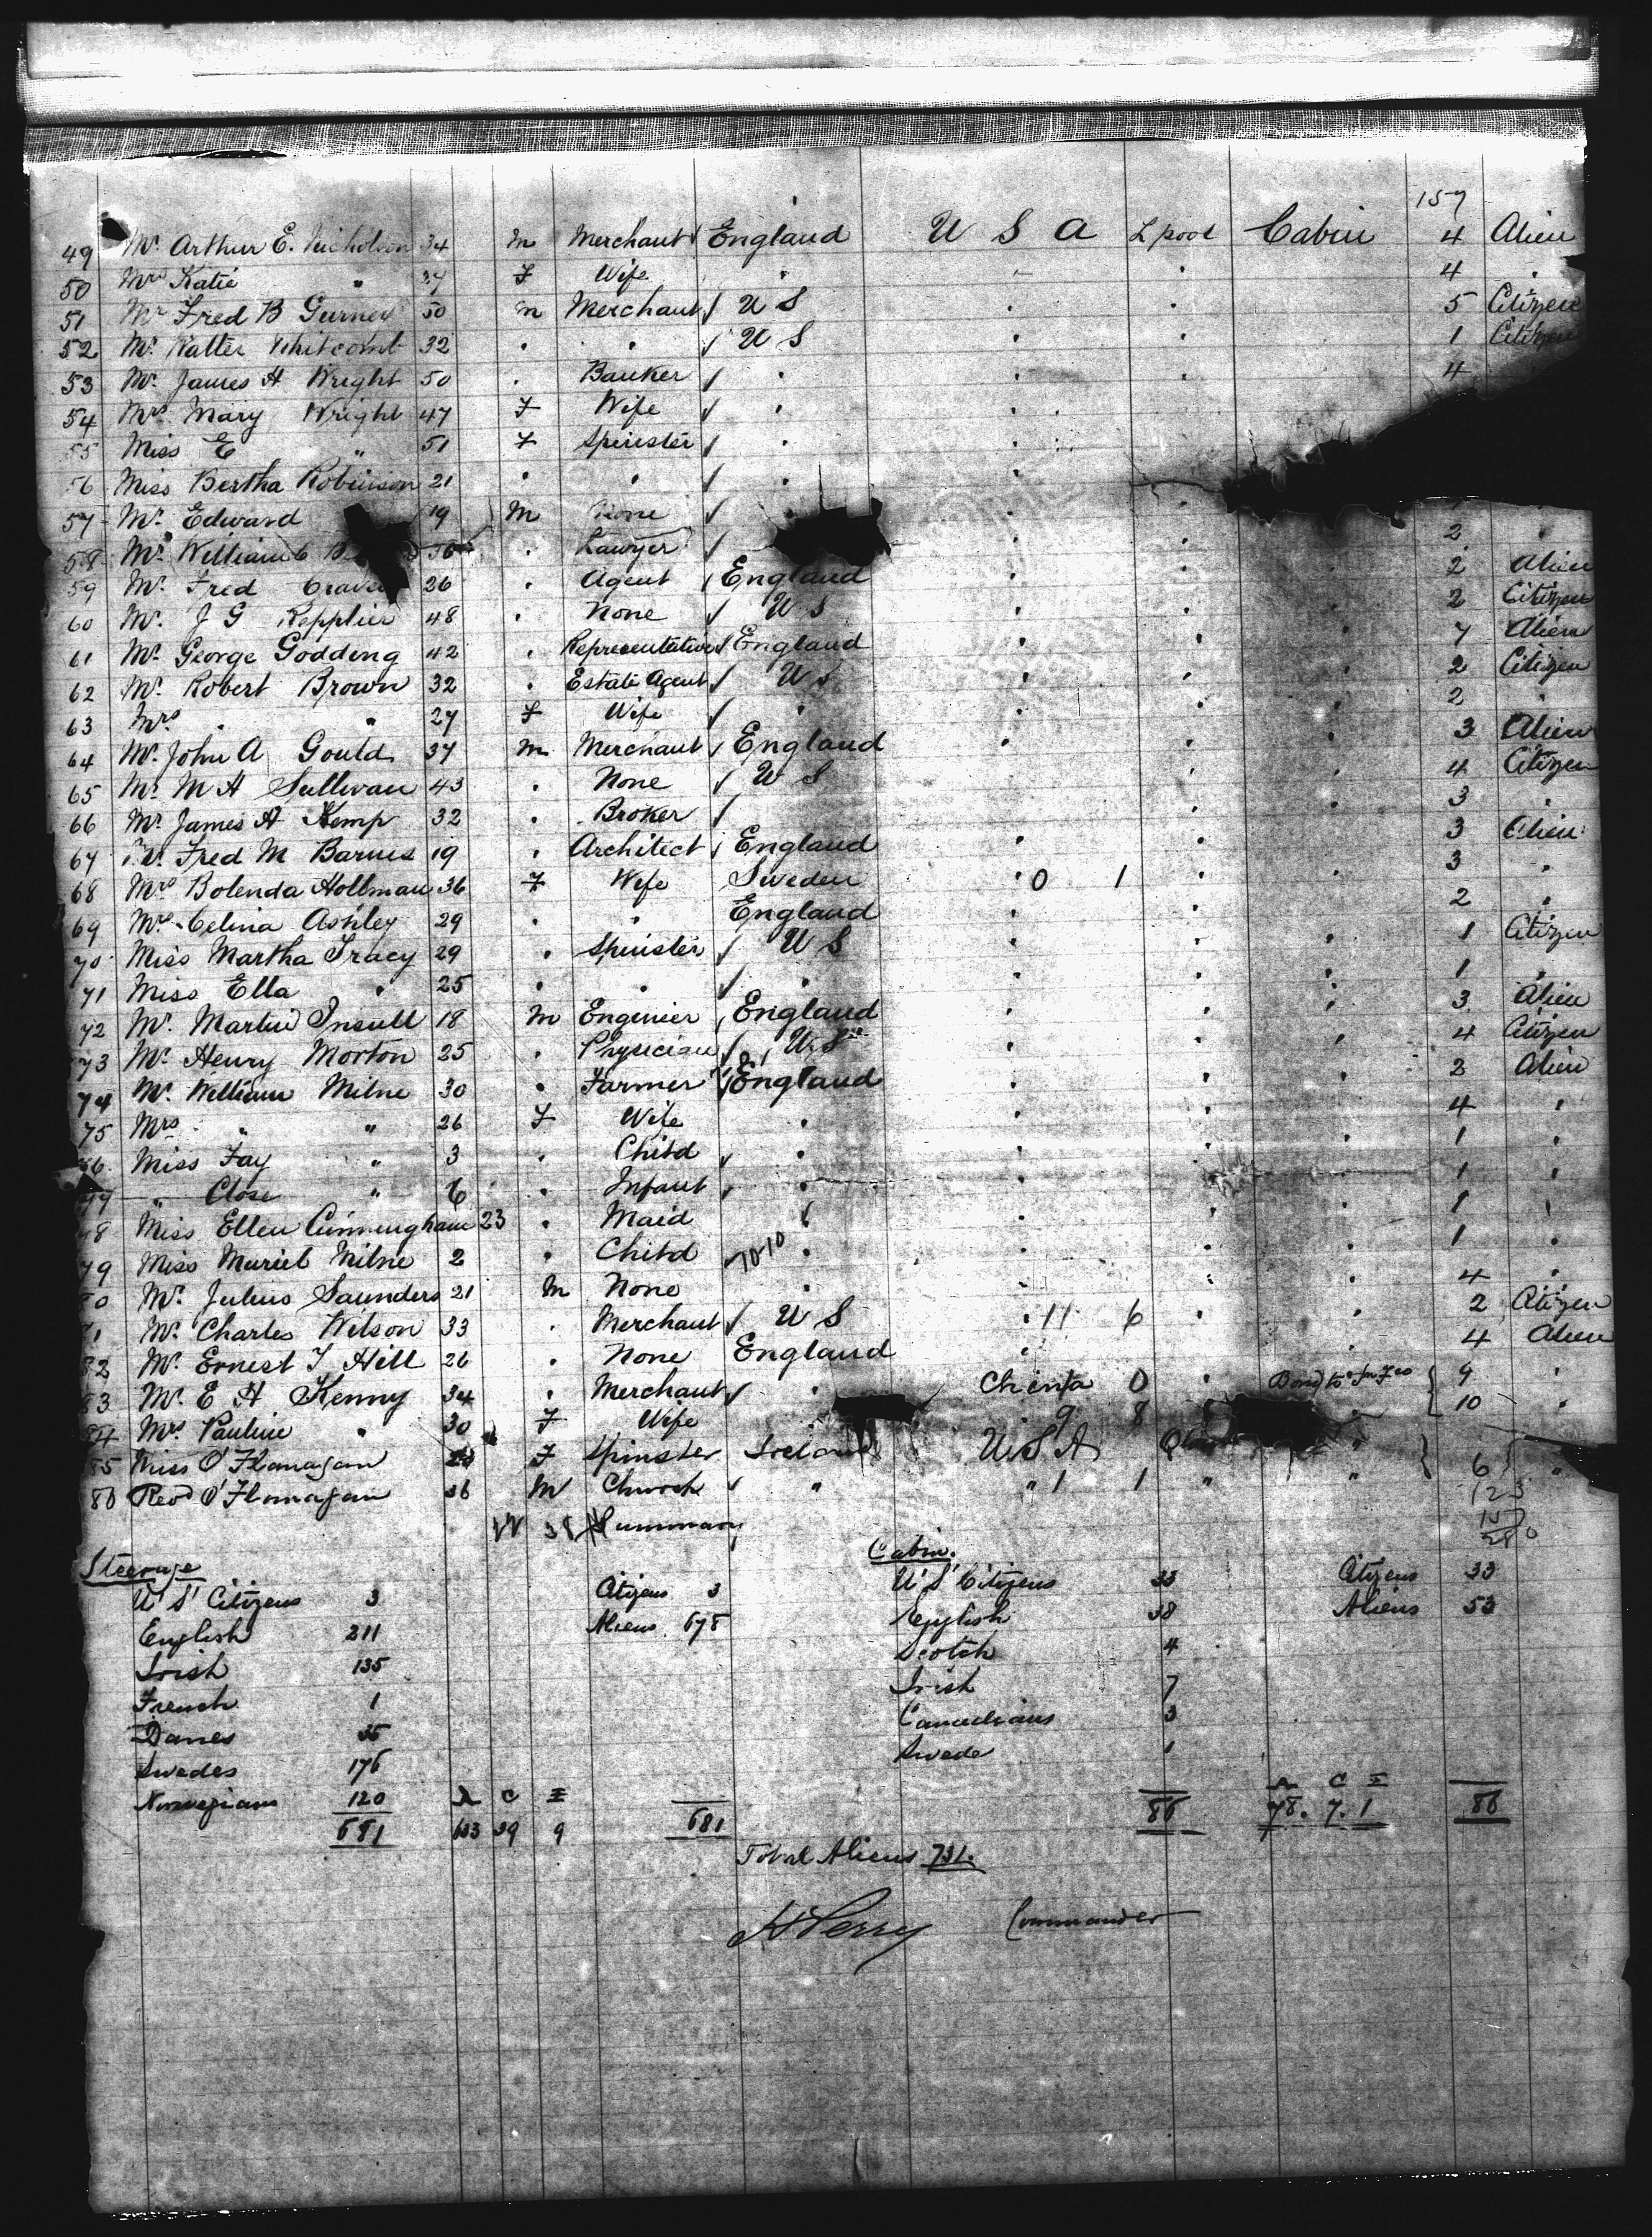 157
49 Mr. Arthur E. Nicholson 34 M Merchant England U S A L'pool Cabin 4 Alien
50 Mrs Katie " 37 F Wife " 4 "
51 Mr Fred B Gurney 50 M Merchant U S 5 Citizen
52 Mr. Walter Whitcomb 32 " " U S 1 Citizen
53 Mr. James H Wright 50 " Banker 4
54 Mrs. Mary Wright 47 F Wife "
55 Miss E " 51 F Spinster "
56 Miss Bertha Robinson 21 " " "
57 Mr. Edward 19 M None
58 Mr. William C B 56 " Lawyer 2 "
59 Mr. Fred Craven 26 " Agent England 2 Alien
60 Mr. J G Repplier 48 " None U S 2 Citizen
61 Mr. George Godding 42 " Representative England 7 Alien
62 Mr. Robert Brown 32 " Estate Agent U S 2 Citizen
63 Mrs " " 27 F Wife " 2 "
64 Mr. John A Gould 37 M Merchant England 3 Alien
65 Mr. M H Sullivan 43 " None U S 4 Citizen
66 Mr. James H Kemp 32 " Broker 3 "
67 Mr. Fred M Barnes 19 " Architect England 3 Alien
68 Mrs Bolenda Hollman 36 F Wife Sweden " 0 1 3 "
69 Mrs. Celina Ashley 29 " " England 2 "
70 Miss Martha Tracy 29 " Spinster U S 1 Citizen
71 Miss Ella " 25 " " " 1 "
72 Mr. Martin Insull 18 M Engineer England 3 Alien
73 Mr. Henry Morton 25 " Physician U S 4 Citizen
74 Mr. William Milne 30 " Farmer England 2 Alien
75 Mrs " " 26 F Wife " 4 "
76 Miss Fay " 3 " Child " 1 "
77 " " 6 " Infant " 1 "
78 Miss Ellen Cunningham 23 " Maid 1 "
79 Miss Muriel Milne 2 " Child 10-10 " 1 "
80 Mr. Julius Saunders 21 M None " 4 "
81 Mr. Charles Wilson 33 " Merchant U S " 11 6 2 Citizen
82 Mr. Ernest T Hill 26 " None England 4 Alien
83 Mr. E H Kenny 34 " Merchant " China 0 " Bond to 9 "
84 Mrs. Pauline " 30 F Wife 9 8 10 "
85 Miss O'Flanagan F Spinster Ireland U S A "
86 Revd O'Flanagan 36 M Church " " 1 1 " " 6 "
123
157
280
Summary
Steerage Cabin.
U S Citizens 3 Citizens 3 U S Citizens 33 Citizens 33
English 211 Aliens 678 English 38 Aliens 53
Irish 135 Scotch 4
French 1 Irish 7
Danes 35 Canadians 3
Swedes 176 Swede 1
Norwegians 120 A C I A C I
681 633 39 9 681 86 78. 7. 1 86
Total Aliens 731.
H Perry Commander